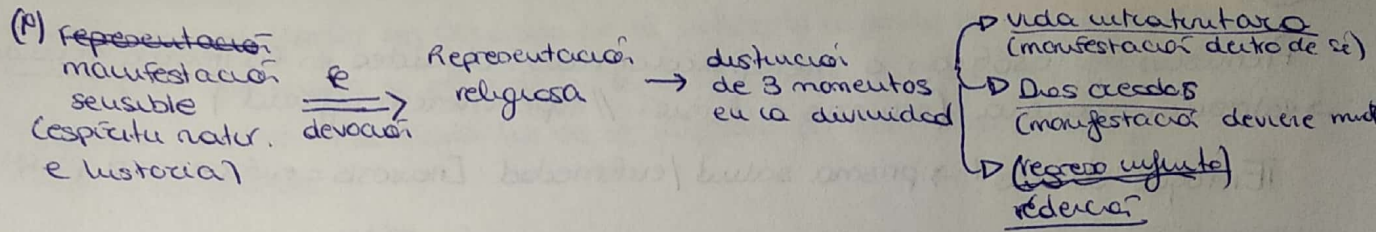 (P) representación
manifestación
sensible
(espíritu natur.
e historia)
fe
devoción
Representación
religiosa
→ distinción
de 3 momentos
en la divinidad
vida intratrinitaria
(manifestación dentro de sí)
Dios creador
(manifestación deviene
(regreso infinito)
redención